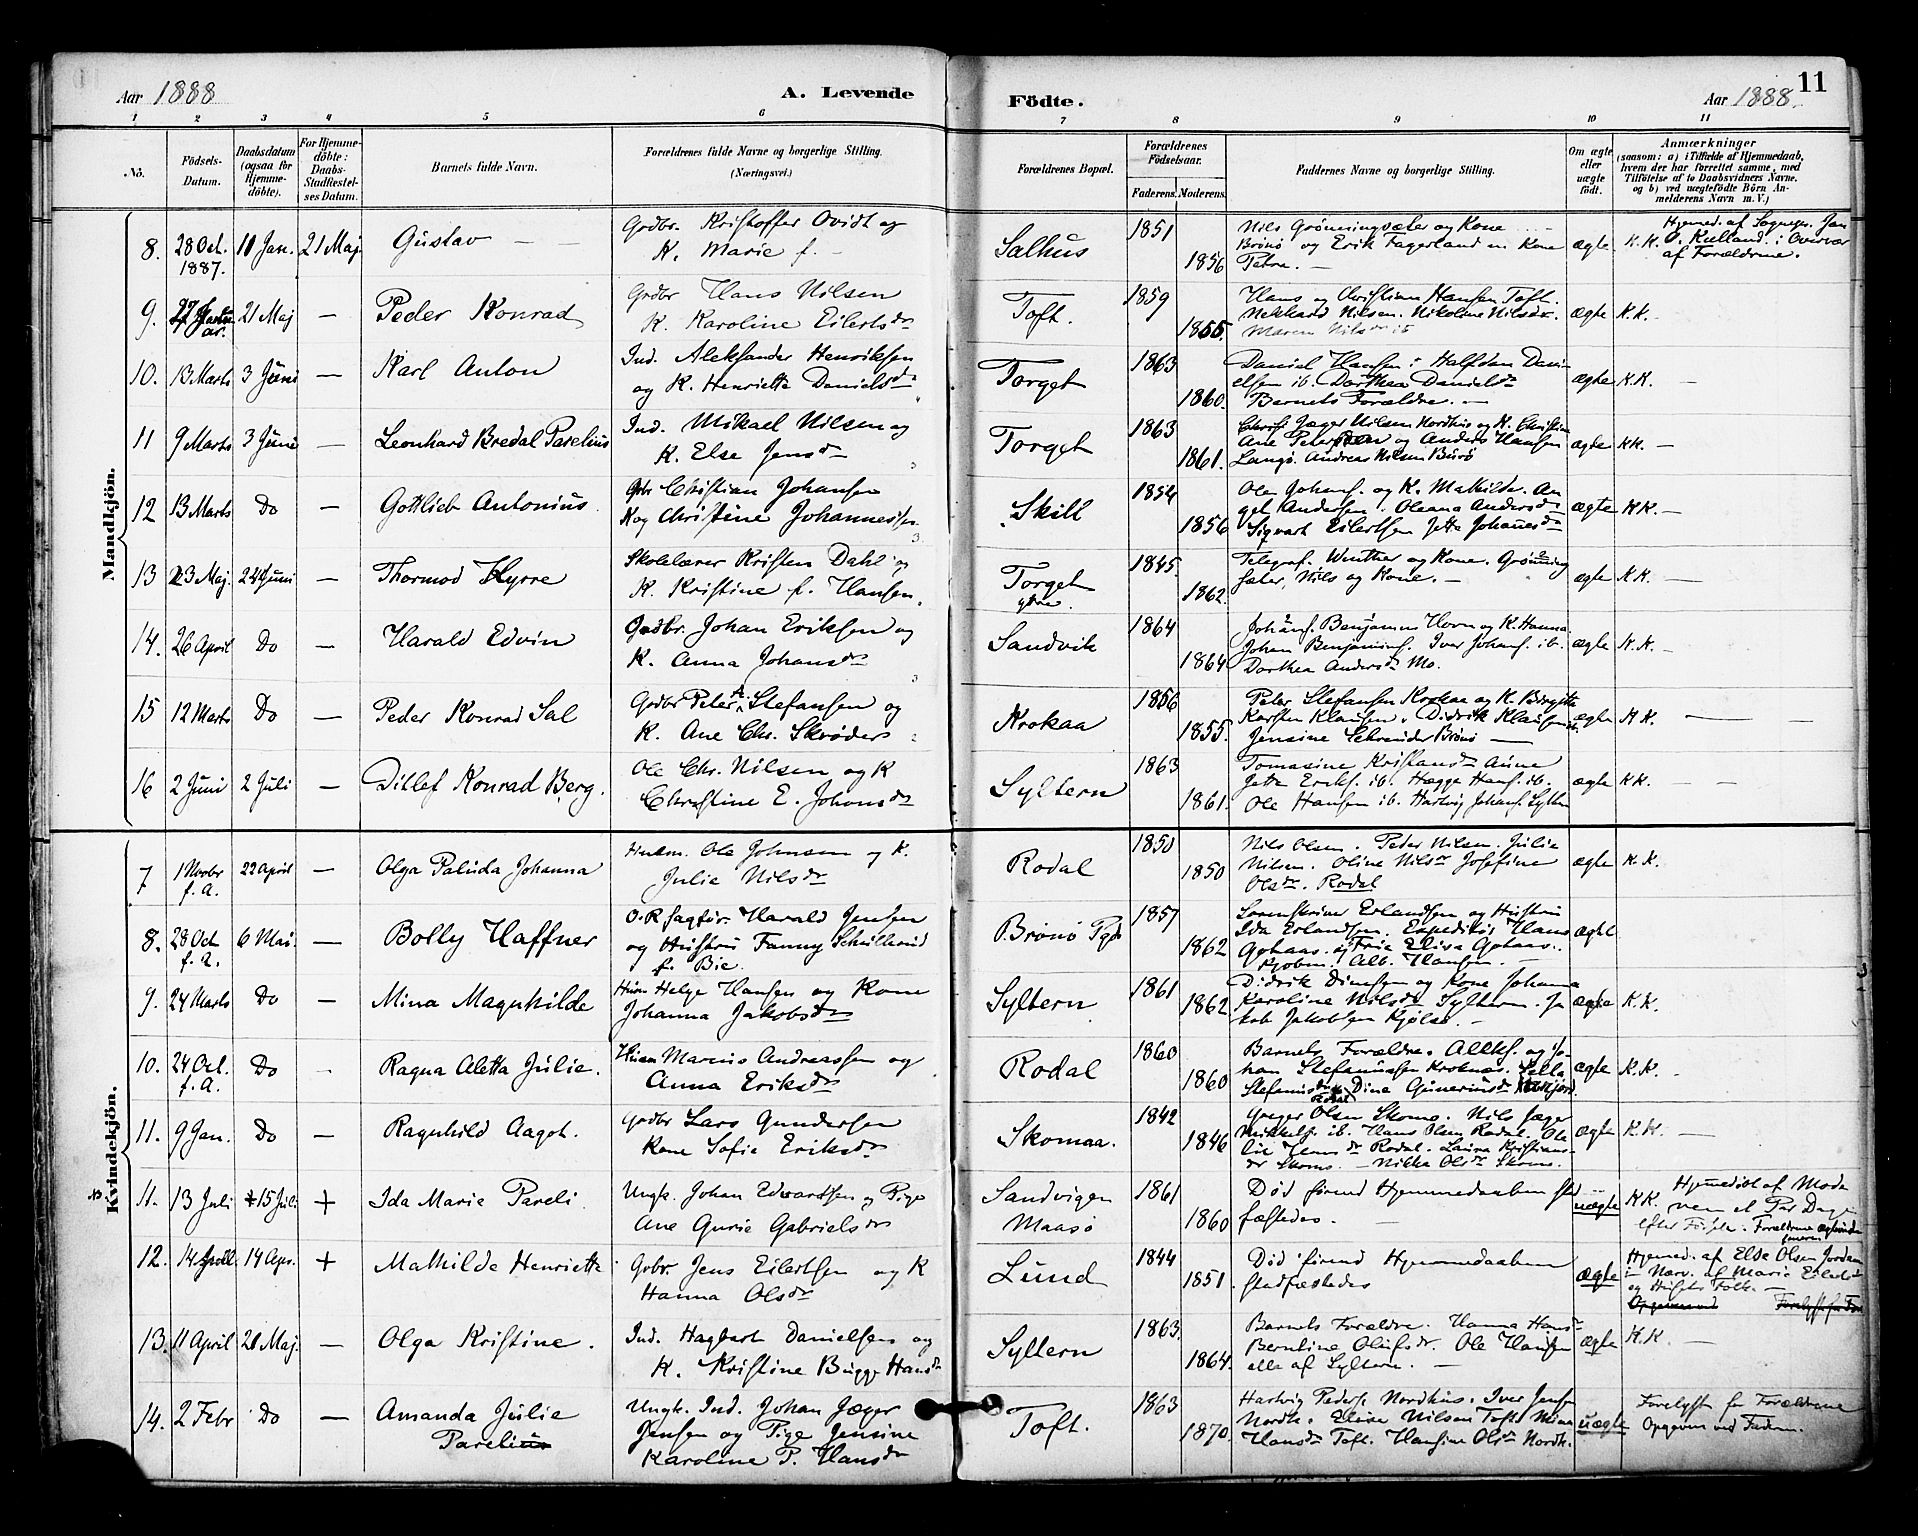 Aar 1888
A. Levende
Födte.
Aar 1888.
11
1 2 3 4 5 6 7 8 9 10 11
No.
Födsels-
Datum.
Daabsdatum
(ogsaa for
Hjemme-
döbte).
For Hjemme-
döbte:
Daabs-
Stadfæstel-
ses Datum.
Barnets fulde Navn.
Forældrenes fulde Navne og borgerlige Stilling.
(Næringsvei.)
Forældrenes Bopæl.
Forældrenes
Födselsaar.
Faderens. Moderens.
Faddernes Navne og borgerlige Stilling.
Om ægte
eller
uægte
födt.
Anmærkninger
(saasom: a) i Tilfælde af Hjemmedaab,
hvem der har forrettet samme, med
Tilföielse af to Daabsvidners Navne,
og b) ved uegtefödte Börn An-
melderens Navn m. V.)
Mandkjön.
8. 28 Oct. 1887. 11 Jan. 21 Maj Gustav
Grdbr. Kristoffer Ovidt og
K. Marie f. –
Salhus 1851 1856
Nils Grønningsæter og Kone
Brønø og Erik Fagerland m Kone
Petra. –
ægte K.K.
Hjemmed. af Sognepr. Jan
Kielland i Overvær
af Forældrene.
9. 21 Maj – Peder Konrad
Grdbr Hans Nilsen
K. Karoline Eilertsdr
Toft. 1859 1855.
Hans og Christian Hansen Toft.
Nekkard Nilsen. Nikoline Nilsdr.
Maren Nilsdr ib
ægte K.K.
10. 13 Marts 3 Juni – Karl Anton
Ind. Aleksander Henriksen
og K. Henriette Danielsdr
Torget 1863 1860.
Daniel Hansen i Halfdan Dani-
elsen ib. Dorthea Danielsdr
Barnets Forældre. –
ægte K.K. –
11 9 Marts 3 Juni – Leonhard Bredal Parelius
Ind. Mikael Nilsen og
K. Else Jensdr
Torget 1863 1861.
Jæger Nilsen Nordhus og K. Christine
Ane Petersen og Anders Hansen
Langø. Andreas Nilsen Burø
ægte K.K. –
12 13 Marts Do – Gottlieb Antonius.
Gbr Christian Johansen
K og Christine Johannessen
Skill 1854 1856
Ole Johans. og K. Mathilde. An-
get Andersen. Oleana Andersdr
Sigvart Eilertsen Jette Johansdr
ægte K.K. –
13 23 Maj. 24 Juni – Thormod Hyrre
Skolelærer Kristen Dahl og
K. Kristine f. Hansen.
Torget
ytre. 1845. 1862.
Telegraf. Winther og Kone. Grønning
sæter, Nils og Kone. –
ægte K.K. –
14. 26 April Do – Harald Edvin
Grdbr. Johan Eriksen og
K. Anna Johansdr
Sandvik 1864 1864
Johans. Benjamin Horn og K. Hanna
Johan Benjamins. Iver Johans. ib.
Dorthea Andersdr Mo.
ægte K.K. –
15 12 Marts Do – Peder Konrad Sal
Grdbr Peter A. Stefansen og
K. Ane Chr. Skrøders
Krokaa 1856 1855.
Peter Stefansen Krokaa og K. Birgitte
Karsten Klausen. Didrik Klausen ib.
Jensine Schrøder Brønø –
ægte K.K. –
16 2 Juni 2 Juli – Ditlef Konrad Berg.
Ole Chr. Nilsen og K
Christine E. Johansdr
Syltern 1863 1861.
Tomasine Kristiansdr Aune
Jette Eriks. ib. Hægge Hans. ib.
Ole Hansen ib. Hartvig Johans. Syltern
ægte K.K. –
Kvindekjön.
7 1 Novbr f. A. 22 April – Olga Paluda Johanna
Husm. Ole Johnsen og K.
Julie Nilsdr
Rodal 1850 1850
Nils Olsen. Peder Nilsen. Julie
Nilsen. Oline Nilsdr Josefine
Olsdr. Rodal
ægte K.K.
8. 28 Oct f. A. 6 Mai. – Bolly Haffner
O.R. sagfør. Harald Jensen
og Hustru Fanny Schullerud
f. Bie.
Brønø Pgd 1857 1862
Sorenskriver Erlandsen og Hustru
Ida Erlandsen. Expeditør Hans
Gohaas. Frue Elisa Gohaas.
Kjøbm. Alb. Hansen. –
ægte
9. 24 Marts Do – Mina Magnhilde
Husm Helge Hansen og Kone
Johanna Jakobsdr
Syltern 1861 1862
Didrik Dinesen og Kone Johanna
Karoline Nilsdr Syltern. Ja
kob Jakobsen Kjølsø. –
ægte K.K.
10. 24 Oct. f. A. Do – Ragna Aletta Julie.
Husm Marius Andreassen og
Anna Eriksdr
Rodal 1860 1860
Barnets Forældre. Alleks. og Jo-
han Stefanussen Kroknæs. Sella
Stefanusdr Dine Guneriusdr
Rodal
ægte K.K. –
11. 9 Jan. Do – Ragnhild Aagot.
Grdbr Lars Gundersen
Kone Sofie Eriksdr
Skomaa. 1842 1846
Greger Olsen Skomo. Nils Jæger
Mikkels. ib. Hans Olsen Rodal. Ole
Hansdr Rodal. Laura Kristians-
dr Skomo. – Nikka Olsdr Skomo.
ægte K.K. –
11. 13 Juli 15 Juli + Ida Marie Pareli
Ungk. Johan Edvardsen og Pige
Ane Gurie Gabrielsdr
Sandvigen
Maasø 1861 1860
Død førend Hjemmedaaben stad
fæstedes. –
uægte K.K.
Hjemmedøbt af Mode
ren et Par Dage
efter Fødsel. Forældrene
12. 14 April 14 Apr. + Mathilde Henriette
Gdbr. Jens Eilertsen og K
Hanna Olsdr
Lund 1844 1851.
Død førend Hjemmedaaben
stadfæstedes
ægte
Hjemmed. af Else Olsen Jordan
i Nærv. af Marie Eilertsdr
og Husets Folk. –
13. 11 April 21 Maj. – Olga Kristine.
Ind. Hagbart Danielsen og
K. Kristine Bugge Hansdr
Syltern 1863. 1864.
Barnets Forældre. Hanna Hansdr
Berntine Olufsdr. Ole Hansen
alle af Syltern. –
ægte K.K. –
14. 2 Febr Do – Amanda Julie
Parelius
Ungk. Ind. Johan Jæger
Jensen og Pige Jensine
Karoline P. Hansdr
Toft. 1863 1870.
Hartvig Peders. Nordhus. Iver Jensen
Nordh. Elise Nilsen Toft. Mina
Hansdr Toft. Hansine Olsdr Nordh.
uægte
Forelyst for Forældrene
Opgiven ved Faderen.